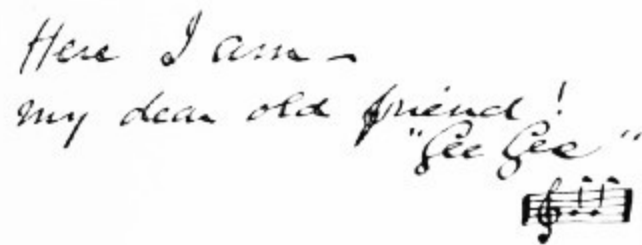 Here I am -
my dear old friend!
"Gee Gee"